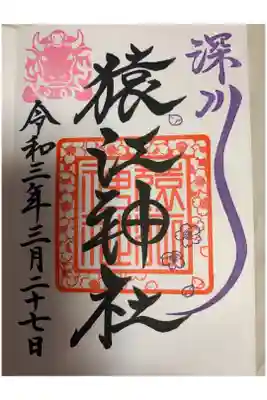 深川
猿江神社
令和三年三月二十七日